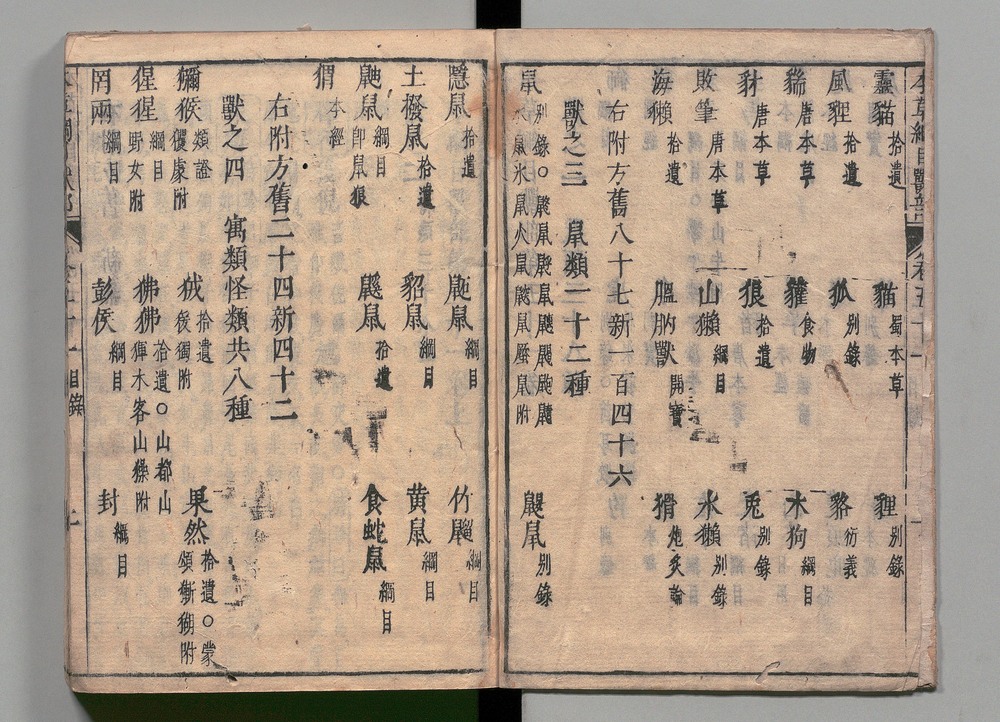 本草綱目獸部 卷五十一
靈貓 拾遺 貓 蜀本草 狸 别錄
風狸 拾遺 狐 别錄 貉 衍義
貒 唐本草 貛 食物 木狗 綱目
豺 唐本草 狼 拾遺 兎 别錄
敗筆 唐本草 山獺 綱目 水獺 别錄
海獺 拾遺 膃肭獸 開寶 猾 炮炙論
右附方舊八十七新一百四十六
獸之三 鼠類一十二種
鼠 别錄○ 鼠氷鼠火鼠 鼠 鼠附 鼹鼠 别錄
隱鼠 拾遺 鼫鼠 綱目 竹䶉 綱目
土撥鼠 拾遺 貂鼠 綱目 黄鼠 綱目
鼬鼠 綱目 卽鼠狼 鼷鼠 拾遺 食蛇鼠 綱目
猬 本經
右附方舊二十四新四十二
獸之四 寓類怪類共八種
獼猴 類證 玃豦附 狨 拾遺 猨獨附 果然 拾遺○蒙頌獑猢附
猩猩 綱目 野女附 狒狒 拾遺○山都山𤟤木客山𤢖附
罔兩 綱目 彭侯 綱目 封 綱目
目錄